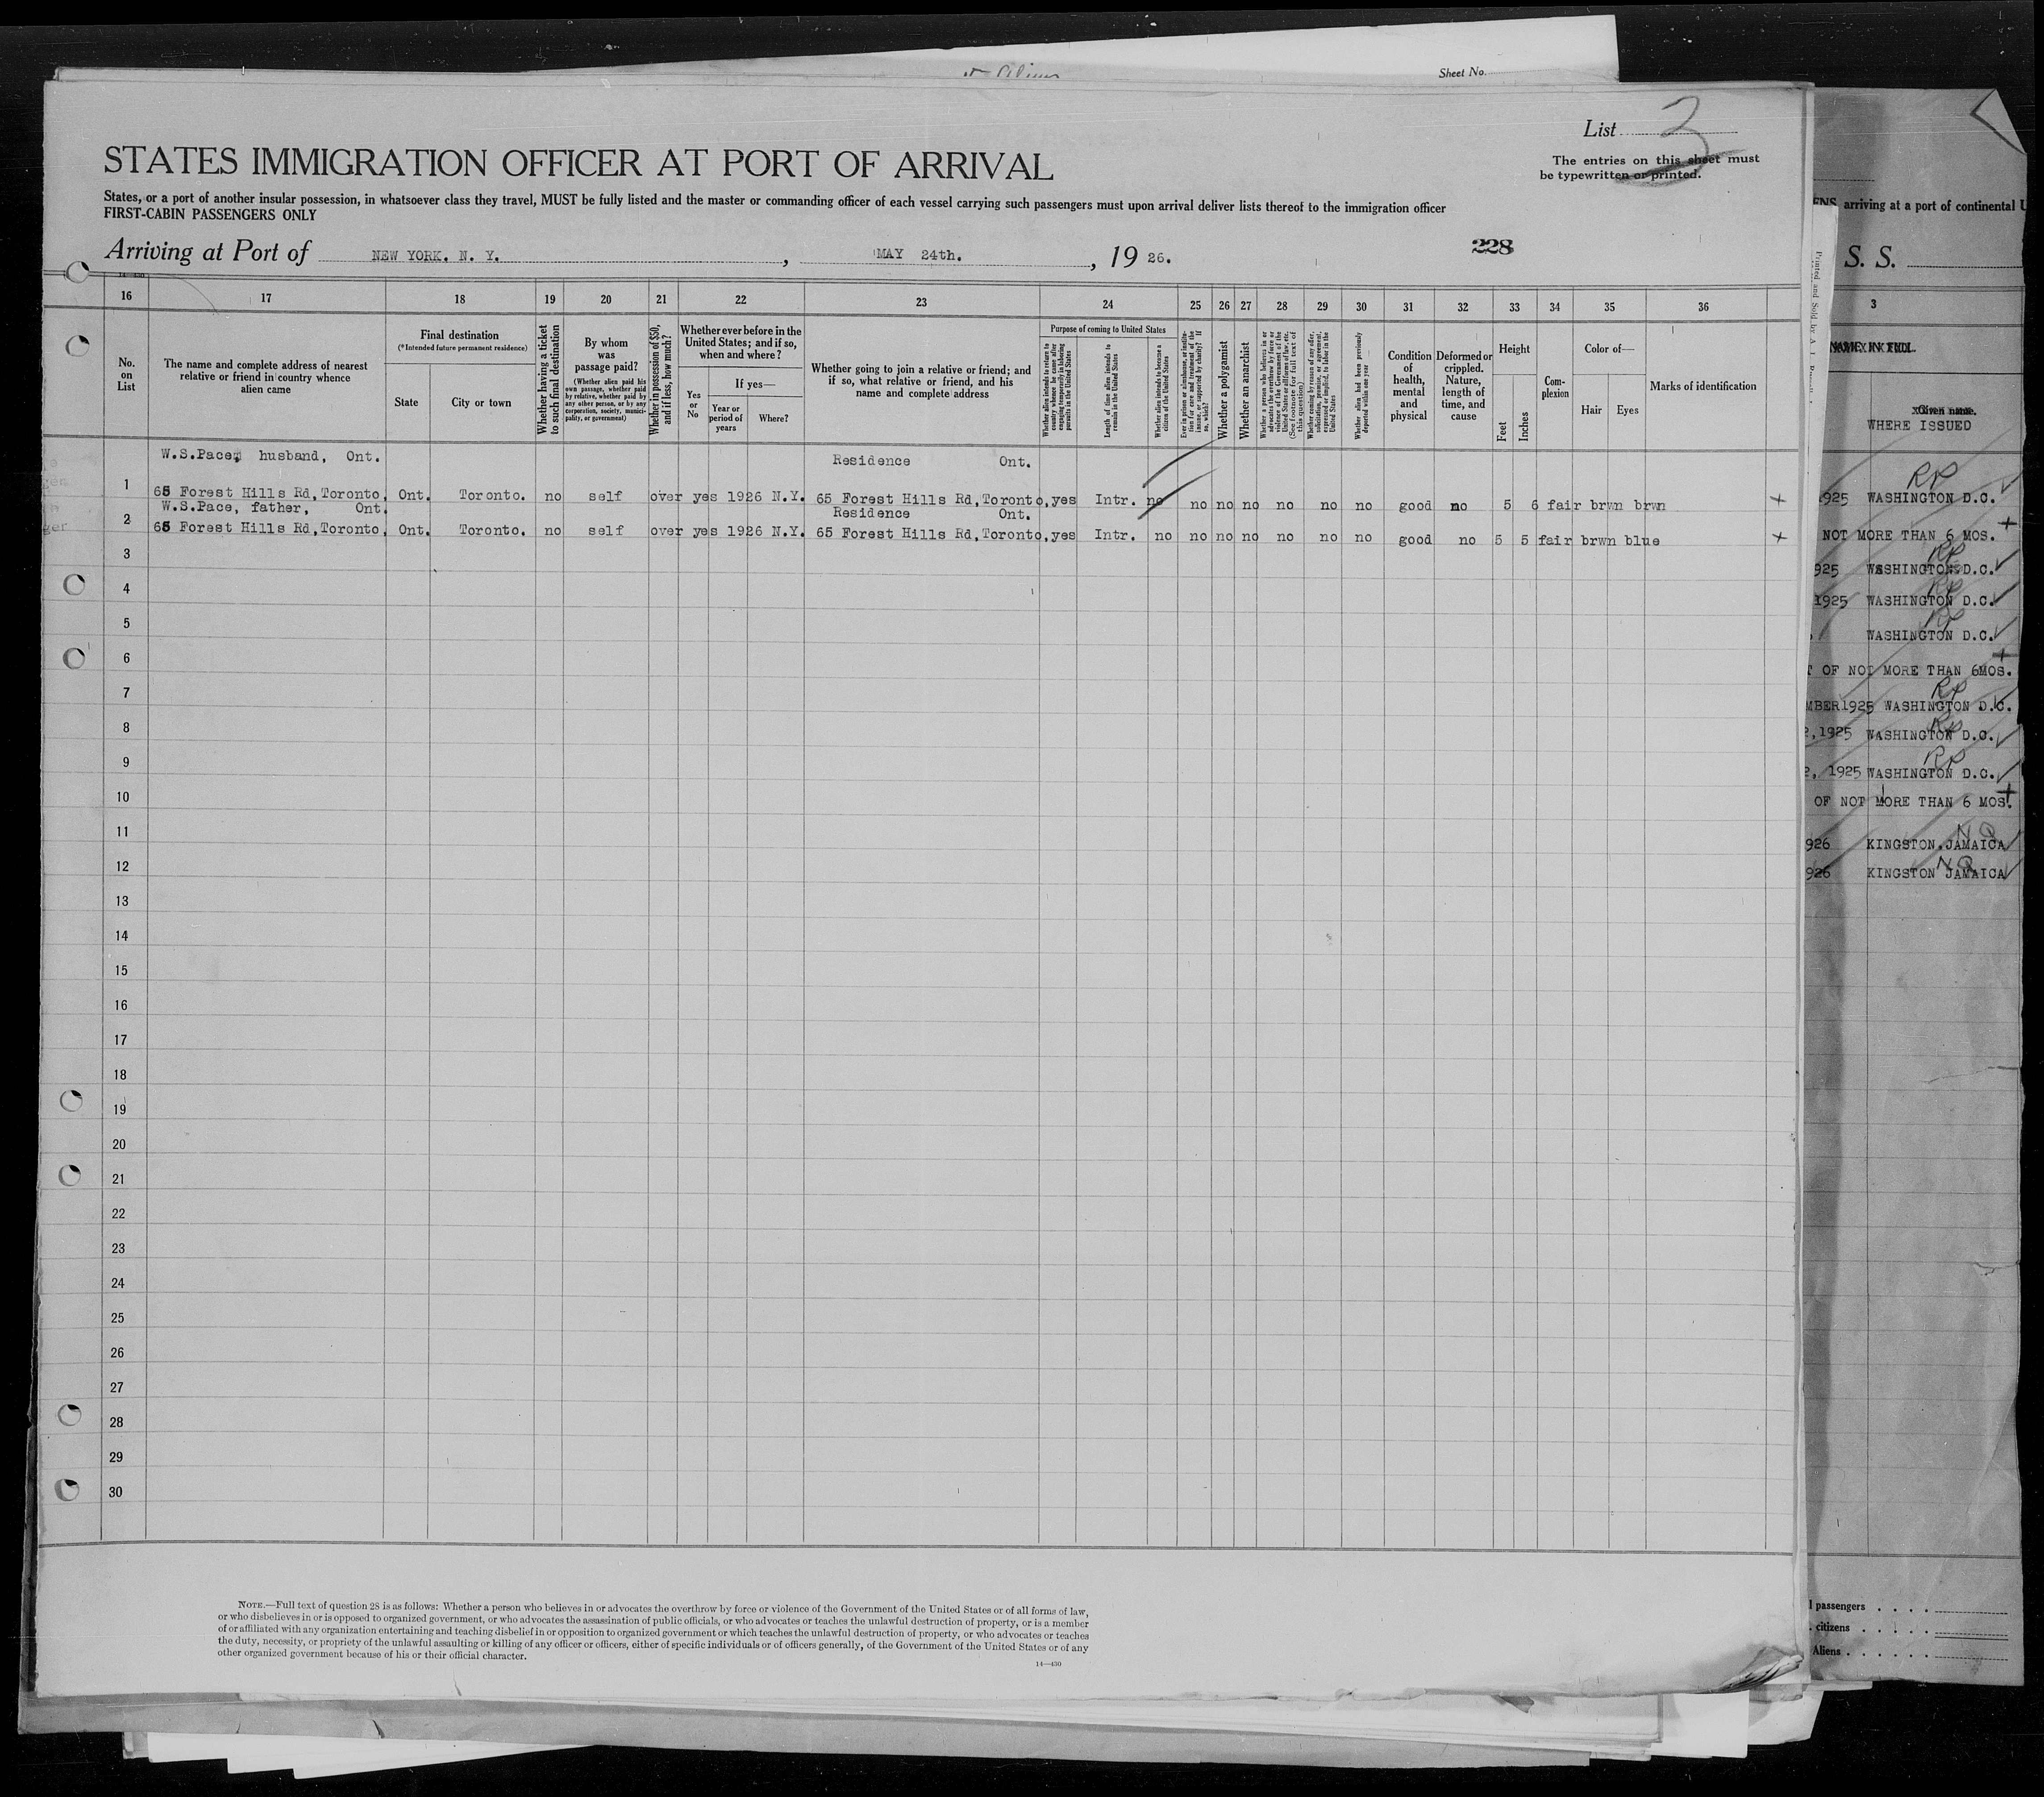 Sheet No.
List 3
STATES IMMIGRATION OFFICER AT PORT OF ARRIVAL
The entries on this sheet must
be typewritten or printed.
States, or a port of another insular possession, in whatsoever class they travel, MUST be fully listed and the master or commanding officer of each vessel carrying such passengers must upon arrival deliver lists thereof to the immigration officer
FIRST-CABIN PASSENGERS ONLY
Arriving at Port of NEW YORK. N. Y. , MAY 24th. , 19 26.
228
16 17 18 19 20 21 22 23 24 25 26 27 28 29 30 31 32 33 34 35 36
No. on List
The name and complete address of nearest relative or friend in country whence alien came
Final destination
(*Intended future permanent residence)
State
City or town
Whether having a ticket to such final destination
By whom was passage paid?
(Whether alien paid his own passage, whether paid by relative, whether paid by any other person, or by any corporation, society, municipality, or government)
Whether in possession of $50, and if less, how much?
Whether ever before in the United States; and if so, when and where?
Yes or No
If yes—
Year or period of years
Where?
Whether going to join a relative or friend; and if so, what relative or friend, and his name and complete address
Purpose of coming to United States
Whether alien intends to return to country whence he came after engaging temporarily in laboring pursuits in the United States
Length of time alien intends to remain in the United States
Whether alien intends to become a citizen of the United States
Ever in prison or almshouse, or institution for care and treatment of the insane, or supported by charity? If so, which?
Whether a polygamist
Whether an anarchist
Whether a person who believes in or advocates the overthrow by force or violence of the Government of the United States or all forms of law, etc. (See footnote for full text of this question)
Whether coming by reason of any offer, solicitation, promise, or agreement, expressed or implied, to labor in the United States
Whether alien had been previously deported within one year
Condition of health, mental and physical
Deformed or crippled. Nature, length of time, and cause
Height
Feet
Inches
Complexion
Color of—
Hair
Eyes
Marks of identification
W.S.Pace, husband, Ont. Residence Ont.
1 65 Forest Hills Rd,Toronto, Ont. Toronto. no self over yes 1926 N.Y. 65 Forest Hills Rd,Toronto,yes Intr. no no no no no no no good no 5 6 fair brwn brwn +
W.S.Pace, father, Ont. Residence Ont.
2 65 Forest Hills Rd,Toronto, Ont. Toronto. no self over yes 1926 N.Y. 65 Forest Hills Rd,Toronto,yes Intr. no no no no no no no good no 5 5 fair brwn blue +
3
4
5
6
7
8
9
10
11
12
13
14
15
16
17
18
19
20
21
22
23
24
25
26
27
28
29
30
NOTE.—Full text of question 28 is as follows: Whether a person who believes in or advocates the overthrow by force or violence of the Government of the United States or of all forms of law,
or who disbelieves in or is opposed to organized government, or who advocates the assassination of public officials, or who advocates or teaches the unlawful destruction of property, or is a member
of or affiliated with any organization entertaining and teaching disbelief in or opposition to organized government or which teaches the unlawful destruction of property, or who advocates or teaches
the duty, necessity, or propriety of the unlawful assaulting or killing of any officer or officers, either of specific individuals or of officers generally, of the Government of the United States or of any
other organized government because of his or their official character.
14—430
arriving at a port of continental U
S. S.
3
Given name.
WHERE ISSUED
RP
1925 WASHINGTON D.C.
NOT MORE THAN 6 MOS. +
RP
925 WASHINGTON D.C.
RP
1925 WASHINGTON D.C.
RP
WASHINGTON D.C.
OF NOT MORE THAN 6MOS. +
RP
MBER1925 WASHINGTON D.C.
RP
2,1925 WASHINGTON D.C.
RP
2, 1925 WASHINGTON D.C.
OF NOT MORE THAN 6 MOS. +
NQ
926 KINGSTON.JAMAICA
NQ
926 KINGSTON JAMAICA
passengers
citizens
Aliens